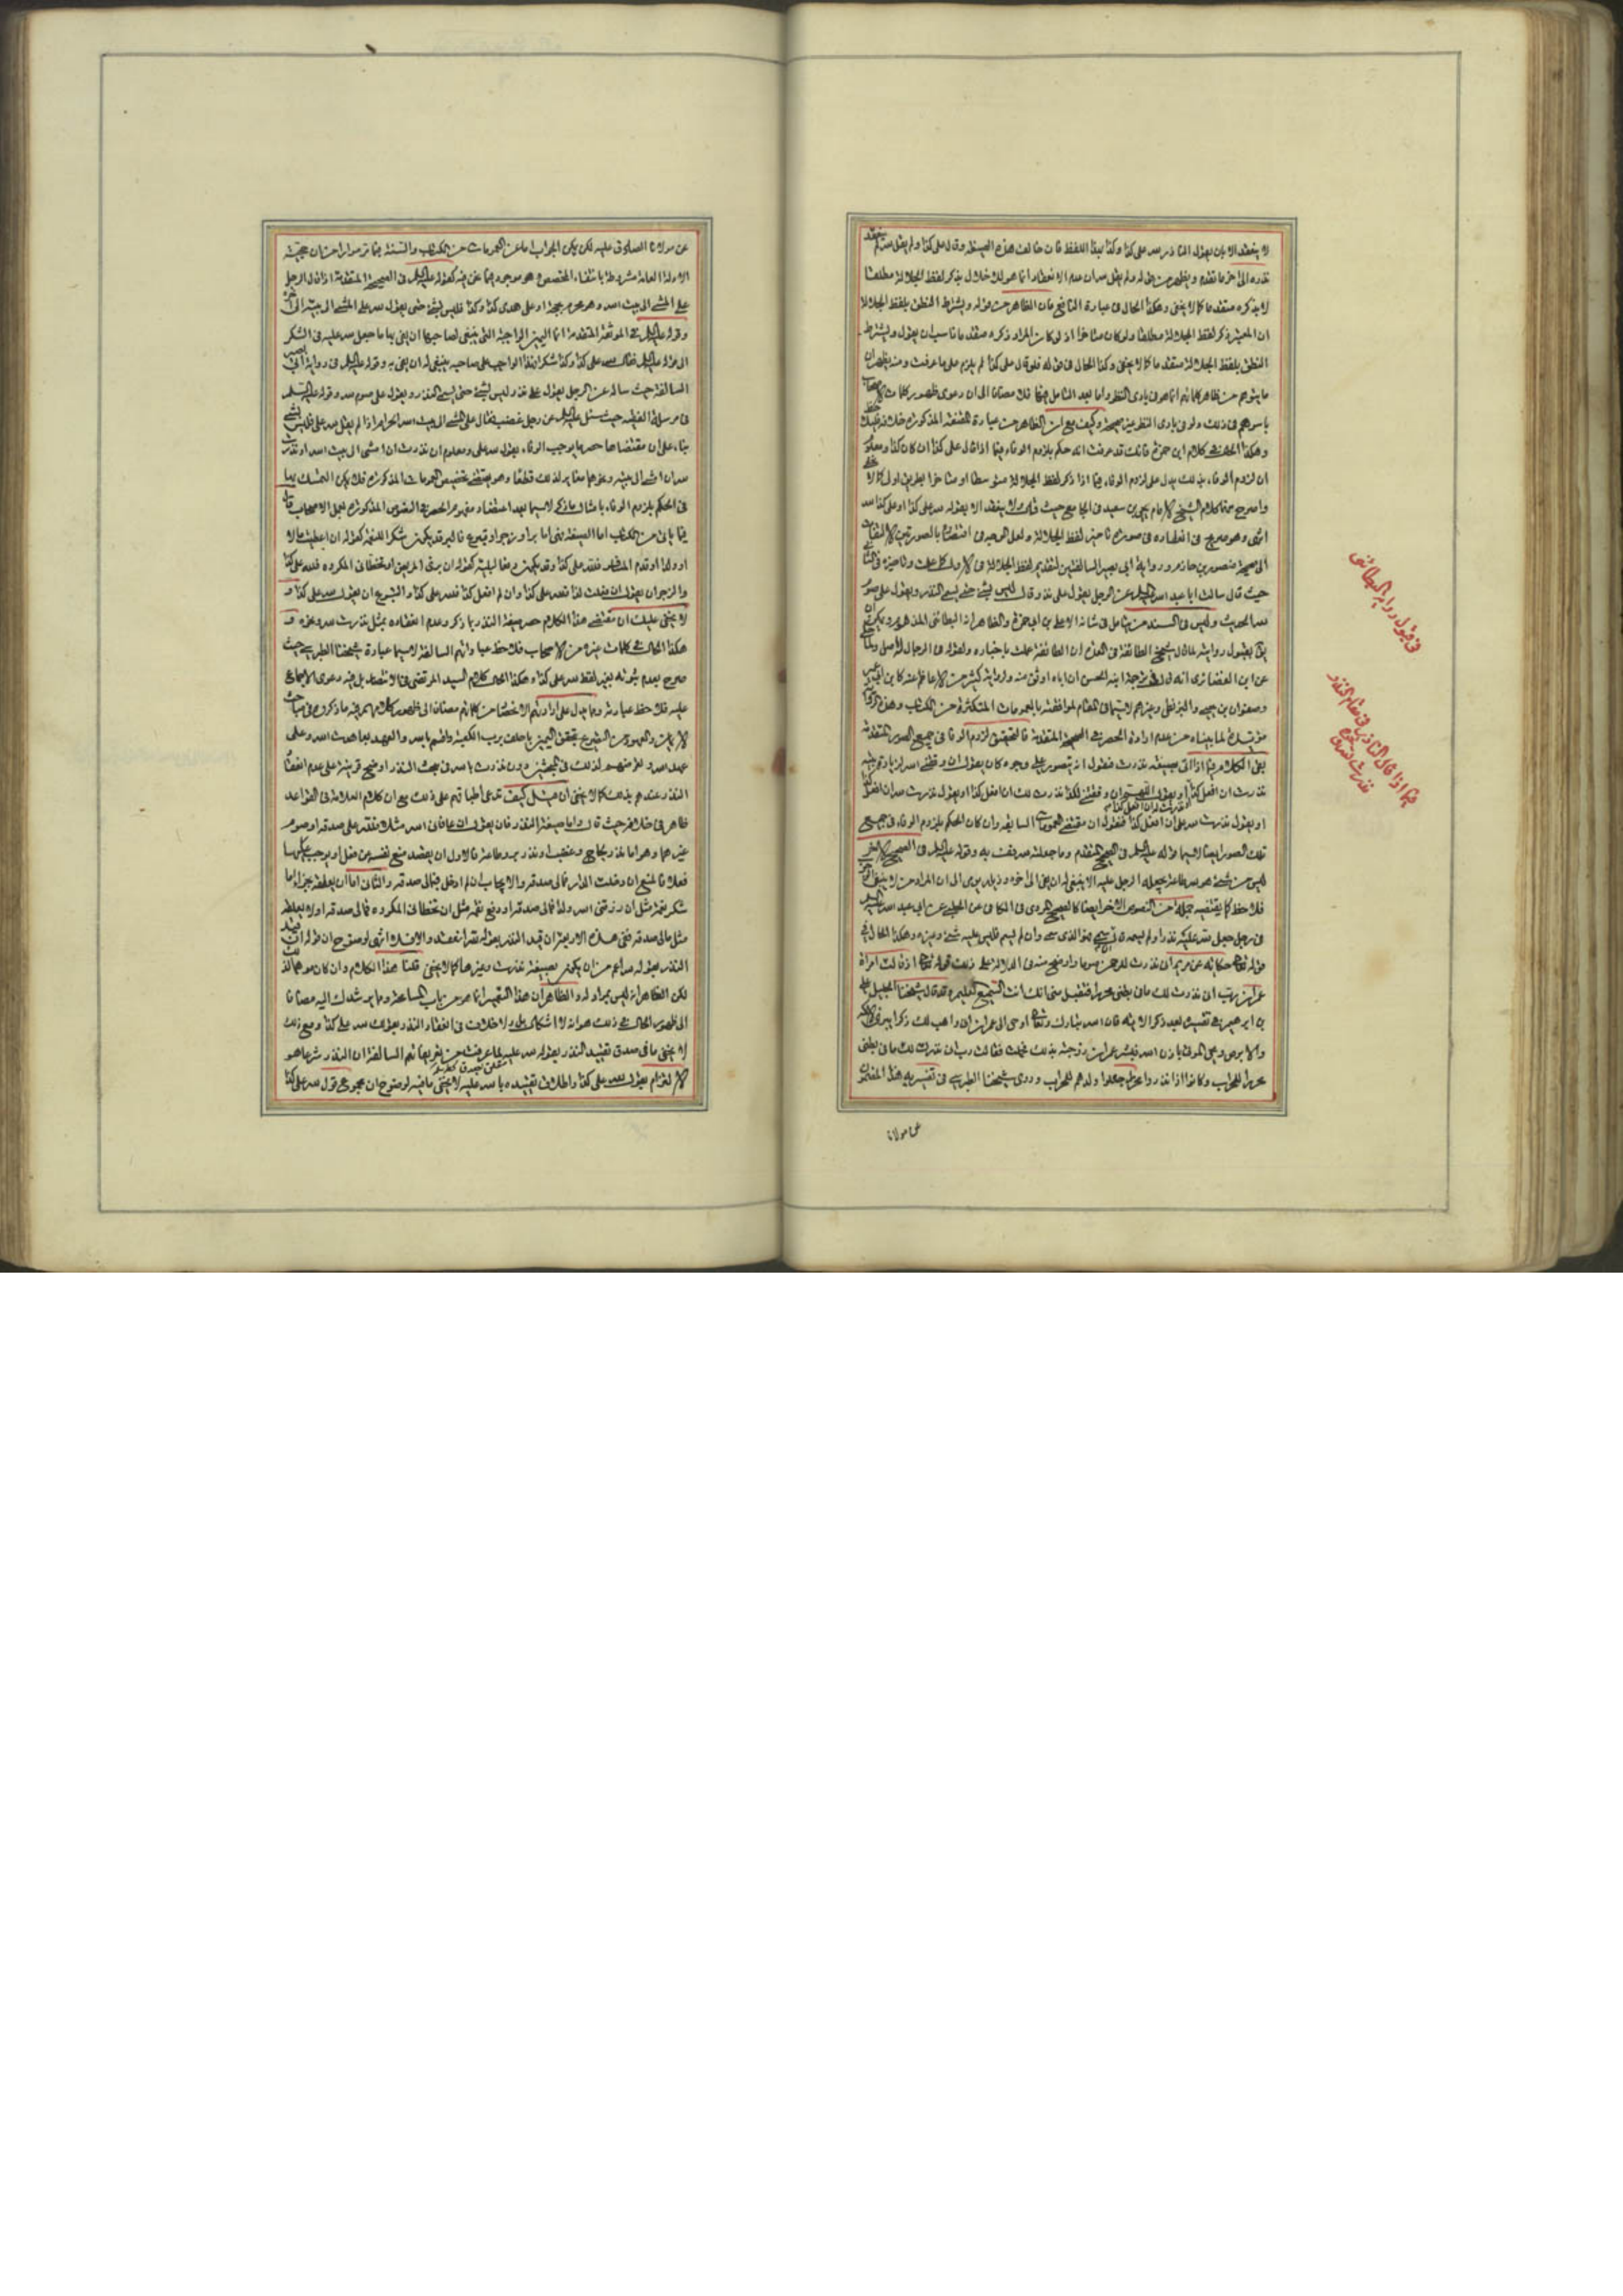 لا ينعقد الا بان يقول الناذر لله على كذا وكذا بهذا اللفظ فان خالف هذه الصيغة وقال على كذا ولم يقل لله لم ينعقد
نذره الى اخر ما تقدم ويظهر من قوله ولم يقل لله ان عدم الانعقاد انما هو للاخلال بذكر لفظ الجلالة مطلقا
لا بذكره مقدما كما لا يخفى وهكذا الحال في عبارة النافع فان الظاهر من قوله ويشترط النطق بلفظ الجلالة
ان المعتبر ذكر لفظ الجلالة مطلقا ولو كان متاخرا اذ لو كان المراد ذكره مقدما ناسب ان يقول ويشترط
النطق بلفظ الجلالة مقدما كما لا يخفى وكذا الحال في قوله فلو قال على كذا لم يلزم على ما عرفت ومنه يظهر ان
ما يتوهم من ظاهر كلماتهم انما هو في بادى النظر واما بعد التامل فيها فلا مضافا الى ان دعوى ظهور كلمات الاصحاب
باسرهم في ذلك ولو في بادى النظر غير صحيحة وكيف مع ان الظاهر من عبارة المقنعة المذكورة خلافه
وهكذا الحال في كلام ابن حمزة فانك قد عرفت انه حكم بلزوم الوفاء فيما اذا قال على كذا ان كان كذا ومعلوم
ان لزوم الوفاء بذلك يدل على لزوم الوفاء فيما اذا ذكر لفظ الجلالة متوسطا او متاخرا بطريق اولى
واصرح منها كلام الشيخ الامام يحيى بن سعيد في الجامع حيث قال ولا ينعقد الا بقوله لله على كذا او على كذا لله
انتهى وهو صريح في انعقاده في صورة تاخير لفظ الجلالة
الى صحيحة منصور بن حازم ورواية ابى بصير السالفتين لتقديم لفظ الجلالة في الاولى
حيث قال سالت ابا عبد الله عليه السلم عن الرجل يقول على نذر قال ليس بشئ حتى يسمى النذر ويقول على صوم
لله الحديث وليس في السند من يتامل في شانه الا على بن ابى حمزة والظاهر انه البطائنى
بقبول روايته لما قال شيخ الطائفة في العدة ان الطائفة عملت باخباره ولقوله في الرجال له اصل
عن ابن الغضائرى انه قال في ترجمة ابنه الحسن ان اباه اوثق منه ولرواية كثير من الاعاظم عنه كابن ابى عمير
وصفوان بن يحيى والبزنطى وغيرهم لا سيما في المقام لموافقته بالعمومات المتكثرة من الكتاب
مؤيد لما بيناه من عدم ارادة الحصر في الصحيحة المتقدمة فالتحقيق لزوم الوفاء في جميع الصور المتقدمة
بقى الكلام فيما اذا اتى بصيغة نذرت فنقول انه يتصور على وجوه كان يقول ان وفقنى الله لزيارة بيته
نذرت ان افعل كذا او يقول اللهم ان وفقتنى لكذا نذرت لك ان افعل كذا او يقول نذرت لله ان افعل كذا
او يقول نذرت لله على ان افعل كذا فنقول ان مقتضى العمومات السالفة وان كان الحكم بلزوم الوفاء في جميع
تلك الصور ايضا لا سيما قوله عليه السلم في الصحيح المتقدم وما جعلته لله فف به وقوله عليه السلم في الصحيح الاخر
ليس من شئ هو لله طاعة يجعله الرجل عليه الا ينبغى له ان يفى الى اخره
فلاحظ كما يقتضيه جملة من النصوص الاخر ايضا كالصحيح المروى في الكافى عن الحلبى عن ابى عبد الله عليه السلم
في رجل جعل لله عليه نذرا ولم يسمه قال ان سمى فهو الذى سمى وان لم يسم فليس عليه شئ وغيره وهكذا الحال في
قوله تعالى حكاية عن مريم انى نذرت للرحمن صوما واوضح منه في الدلالة على ذلك قوله تعالى اذ قالت امراة
عمران رب انى نذرت لك ما في بطنى محررا فتقبل منى انك انت السميع العليم وقد قال شيخنا الجليل على
بن ابرهيم في تفسيره بعد ذكر الاية فان الله تبارك وتعالى اوحى الى عمران انى واهب لك ذكرا يبرئ الاكمه
والابرص ويحيى الموتى باذن الله فبشر عمران زوجته بذلك فحملت فقالت رب انى نذرت لك ما في بطنى
محررا للمحراب وكانوا اذا نذروا نذرا جعلوا ولدهم للمحراب وروى شيخنا الطبرسى في تفسيره هذا المضمون
عن مولانا
في قبول رواية البطائنى
فيما اذا قال الناذر في مقام النذر
نذرت لله
عن مولانا الصادق عليه لكن يمكن الجواب اما عن العمومات من الكتاب والسنة فبما مر مرارا من ان حجية
الادلة العامة مشروطة بانتفاء المخصص وهو موجود فيما نحن فيه كقوله عليه السلم في الصحيحة المتقدمة اذا قال الرجل
على المشى الى بيت الله وهو محرم بحجة او على هدى كذا وكذا فليس بشئ حتى يقول لله على المشى الى بيته الى اخره
وقوله عليه السلم في الموثقة المتقدمة انما اليمين الواجبة التى ينبغى لصاحبها ان يفى بها ما جعل لله عليه في الشكر
الى قوله عليه السلم فقال لله على كذا وكذا شكرا فهذا الواجب على صاحبه ينبغى له ان يفى به وقوله عليه السلم في رواية ابى بصير
السالفة حيث ساله عن الرجل يقول على نذر ليس بشئ حتى يسمى النذر ويقول على صوم لله وقوله عليه السلم
في مرسلة الفقيه حيث سئل عليه السلم عن رجل غضب فقال على المشى الى بيت الله الحرام اذا لم يقل لله على فليس بشئ
بناء على ان مقتضاها حصر ما يوجب الوفاء بقول لله على ومعلوم ان نذرت ان امشى الى بيت الله او نذرت
لله ان امشى الى بيته وغيرهما مغاير لذلك قطعا وهو يقتضى تخصيص العمومات المذكورة فلا يمكن التمسك بها
في الحكم بلزوم الوفاء بامثال ما ذكر لا سيما بعد اعتضاد مفهوم الحصر في النصوص المذكورة بعمل الاصحاب
اما الصيغة فهى اما بر او زجر او تبرع فالبر قد يكون شكرا للنعمة كقوله ان اعطيت مالا
او ولدا او قدم المسافر فلله على كذا وقد يكون دفعا لبلية كقوله ان برئ المريض او تخطانى المكروه فلله على كذا
والزجر ان يقول ان فعلت كذا فلله على كذا وان لم افعل كذا فلله على كذا والتبرع ان يقول لله على كذا و
لا يخفى عليك ان مقتضى هذا الكلام حصر صيغة النذر بما ذكر وعدم انعقاده بمثل نذرت لله وغيره و
هكذا الحال في كلمات غيره من الاصحاب فلاحظ عباراتهم السالفة لا سيما عبارة شيخنا الطبرسى حيث
صرح بعدم ثبوته بغير لفظ لله على كذا وهكذا الحال في كلام السيد المرتضى في الانتصار بل فيه دعوى الاجماع
عليه فلاحظ عبارته ومما يدل على ارادتهم الاختصاص من كلماتهم مضافا الى ظهور كلماتهم فيه ما ذكروه في مباحث
الايمان والعهود من التصريح بتحقق اليمين باحلف برب الكعبة واقسم بالله والعهد بعاهدت الله وعلى
عهد الله والتعرض منهم لذلك في المبحثين دون نذرت بالله في بحث النذر اوضح قرينة على عدم انعقاد
النذر عندهم بذلك كما لا يخفى
ظاهر في خلافه حيث قال واما صيغة النذر فان يقول ان عافانى الله مثلا فلله على صدقة او صوم او
غيرهما وهو اما نذر لجاج وغضب او نذر بر وطاعة فالاول ان يقصد منع نفسه عن فعل او يوجب عليها
فعلا فالمنع ان دخلت الدار فمالى صدقة والايجاب ان لم ادخل فمالى صدقة والثانى اما ان يعلقه بجزاء اما
شكر نعمة مثل ان رزقنى الله ولدا فمالى صدقة او دفع نقمة مثل ان تخطانى المكروه فمالى صدقة او لا يعلقه
مثل مالى صدقة ففى هذه الاربعة ان قيد النذر بقوله لله انعقد والا فلا انتهى لوضوح ان قوله ان قيد
النذر بقوله لله اعم من ان يكون بصيغة نذرت وغيرها كما لا يخفى قلنا هذا الكلام وان كان موهما لذلك
لكن الظاهر انه ليس بمراد له والظاهر ان هذا التعبير انما هو من باب المسامحة ومما يرشدك اليه مضافا
الى ظهور الحال في ذلك هو انه لا اشكال بل ولا خلاف في انعقاد النذر بقولك لله على كذا ومع ذلك
لا يخفى ما في صدق تقييد النذر بقوله لله عليه لما عرفت من تعريفاتهم السالفة ان النذر شرعا هو
الالتزام بقول لله على كذا واطلاق تقييده بالله عليه لا يخفى ما فيه لوضوح ان مجموع قول لله على كذا